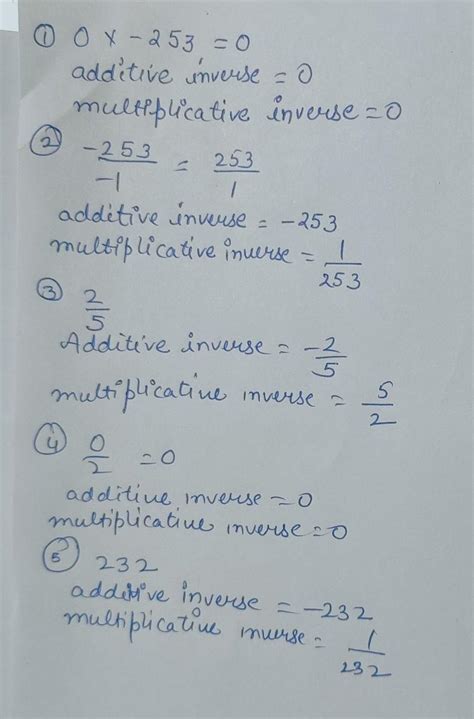 ① 0 x - 253 = 0
additive inverse = 0
multiplicative inverse = 0
② -253/-1 = 253/1
additive inverse = -253
multiplicative inverse = 1/253
③ 2/5
Additive inverse = -2/5
multiplicative inverse = 5/2
④ 0/2 = 0
additive inverse = 0
multiplicative inverse = 0
⑤ 232
additive inverse = -232
multiplicative inverse = 1/232